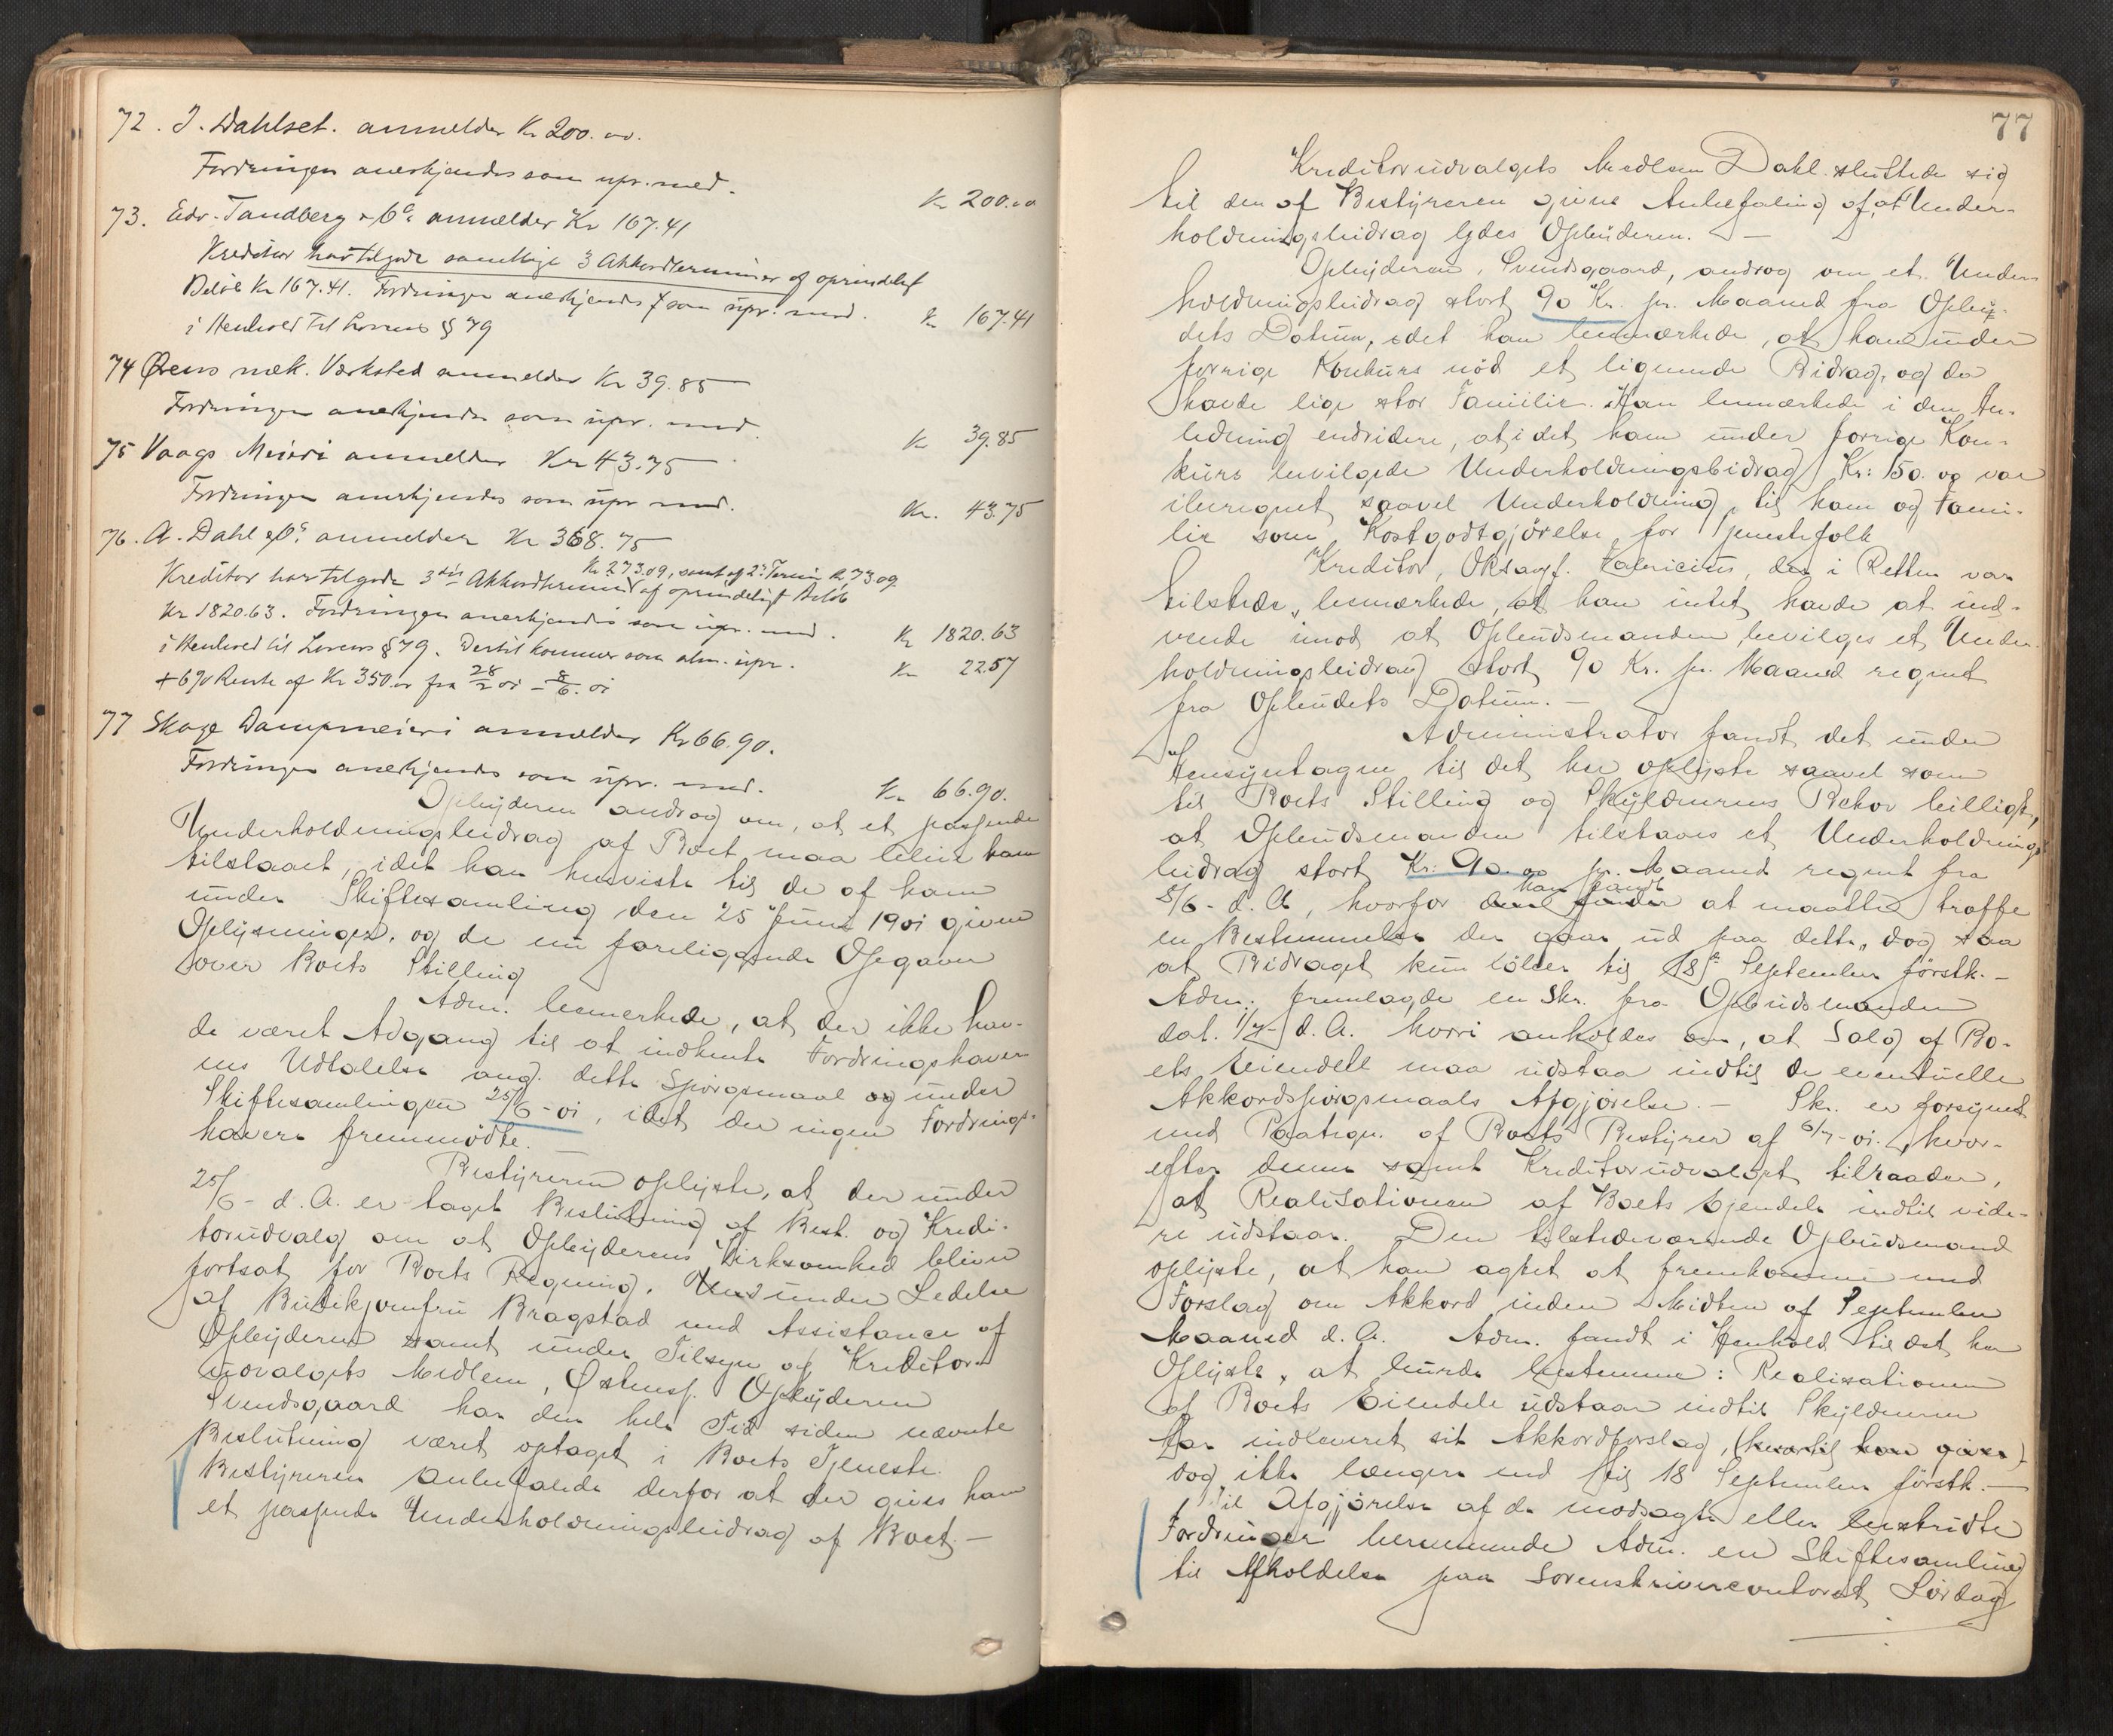 72. J. Dahlset. anmelder Kr 200.00.
Fordringen anerkjendes som upr. med.
Kr 200.00
73. Edv. Tandberg & Co anmelder Kr 167.41
Kreditor har tilgode samtlige 3 Akkordterminer af oprindeligt
Beløb Kr 167.41. Fordringen anerkjendes som upr. med.
Kr 167.41
i Henhold til Lovens § 79
74 Ørens mek. Værksted anmelder Kr 39.85
Fordringen anerkjendes som upr. med.
Kr 39.85
75 Vaags Meieri anmelder Kr 43.75
Fordringen anerkjendes som upr med.
Kr. 43.75
76. A. Dahl & Co. anmelder Kr 368.75
Kr 273.09, samt af 2' Termin Kr 73.09
Kreditor har tilgode 3die Akkordtermin af oprindeligt Beløb
Kr 1820.63. Fordringen anerkjendes som upr. med.
Kr 1820.63
i Henhold til Lovens § 79. Dertil kommer som alm. upr.
Kr 22.57
+ 6% Rente af Kr 350.00 fra 28/2 01 - 8/6. 01
77 Skage Dampmeieri anmelder Kr 66.90.
Fordringen anerkjendes som upr. med.
Kr 66.90.
Opbyderen androg om, at et passende
Underholdningsbidrag af Boet maa blive ham
tilstaaet, idet han henviste til de af ham
under Skiftesamling den 25 Juni 1901 givne
Oplysninger, og de nu foreliggende Opgaver
over Boets Stilling
Adm. bemerkede, at der ikke hav-
de været Adgang til at indhente Fordringshaver
nes Udtalelse ang. dette Spørgsmaal og under
Skiftesamlingen 25/6-01, idet der ingen Fordrings-
havere fremmødte.
Bestyreren oplyste, at der under
25/6- d. A. er taget Beslutning af Best. og Kredi-
torudvalg om at Opbyderens Virksomhed bliver
fortsat for Boets Regning, under Ledelse
af Butikjomfru Bragstad med Assistance af
Opbyderen samt under Tilsyn af Kreditor-
udvalgets Medlem, Østensj. Opbyderen
Svendsgaard har den hele Tid siden nævnte
Beslutning været optaget i Boets Tjeneste.
Bestyreren anbefalede derfor at der gives ham
et passende Underholdningsbidrag af Boet. —
77
Kreditorudvalgets Medlem Dahl sluttede sig
til den af Bestyreren givne Anbefaling af, at Under-
holdningsbidrag ydes Opbyderen. —
Opbyderen, Svendsgaard, androg om et Under-
holdningsbidrag stort 90 Kr. pr. Maaned fra Opbu-
dets Datum, idet han bemærkede, at han under
forrige Konkurs nød et lignende Bidrag, og da
havde lige stor Familie. Han bemærkede i den An-
ledning endvidere, at i det ham under forrige Kon-
kurs bevilgede Underholdningsbidrag Kr: 150.00 var
iberegnet saavel Underholdning til ham og Fami-
lie som Kostgodtgjörelse for Tjenestefolk
Kreditor, Oksagf. Fabricius, der i Retten var
tilstede, bemærkede, at han intet havde at ind-
vende imod at Opbudsmanden bevilges et Under-
holdningsbidrag stort 90 Kr. pr. Maaned regnet
fra Opbudets Datum. —
Administrator fandt det under
Hensyntagen til det her oplyste saavel som
til Boets Stilling og Skyldnerens Behov billigt,
at Opbudsmanden tilstaaes et Underholdnings
bidrag stort Kr: 90.00 pr. Maaned regnet fra
8/6- d. A, hvorfor han fandt at maatte træffe
en Bestemmelse der gaar ud paa dette, dog saa
at Bidraget kun löber til 18de September förstk. —
Adm. fremlagde en Skr. fra Opbudsmanden
dat. 1/7- d. A. hvori anholdes om, at Salg af Bo-
ets Eiendele maa udstaa indtil de eventuelle
Akkordspørgsmaals Afgjørelse. — Skr. er forsynet
med Paategn. af Boets Bestyrer af 6/7-01., hvor-
efter denne samt Kreditorudvalget tilraader,
at Realisationen af Boets Ejendele indtil vide-
re udstaar. Den tilstedeværende Opbudsmand
oplyste, at han agtet at fremkomme med
Forslag om Akkord inden Midten af September
Maaned d. A. Adm. fandt i Henhold til det her
Oplyste, at burde bestemme: Realisationen
af Boets Eiendele udstaar indtil Skyldneren
har indleveret sit Akkordforslag, (hvortil han gives)
dog ikke længere end til 18 September förstk. —
Til Afgjørelse af de modsagte eller bestridte
Fordringer berammede Adm. en Skiftesamling
til Afholdelse paa Sorenskrivercontoret Lørdag